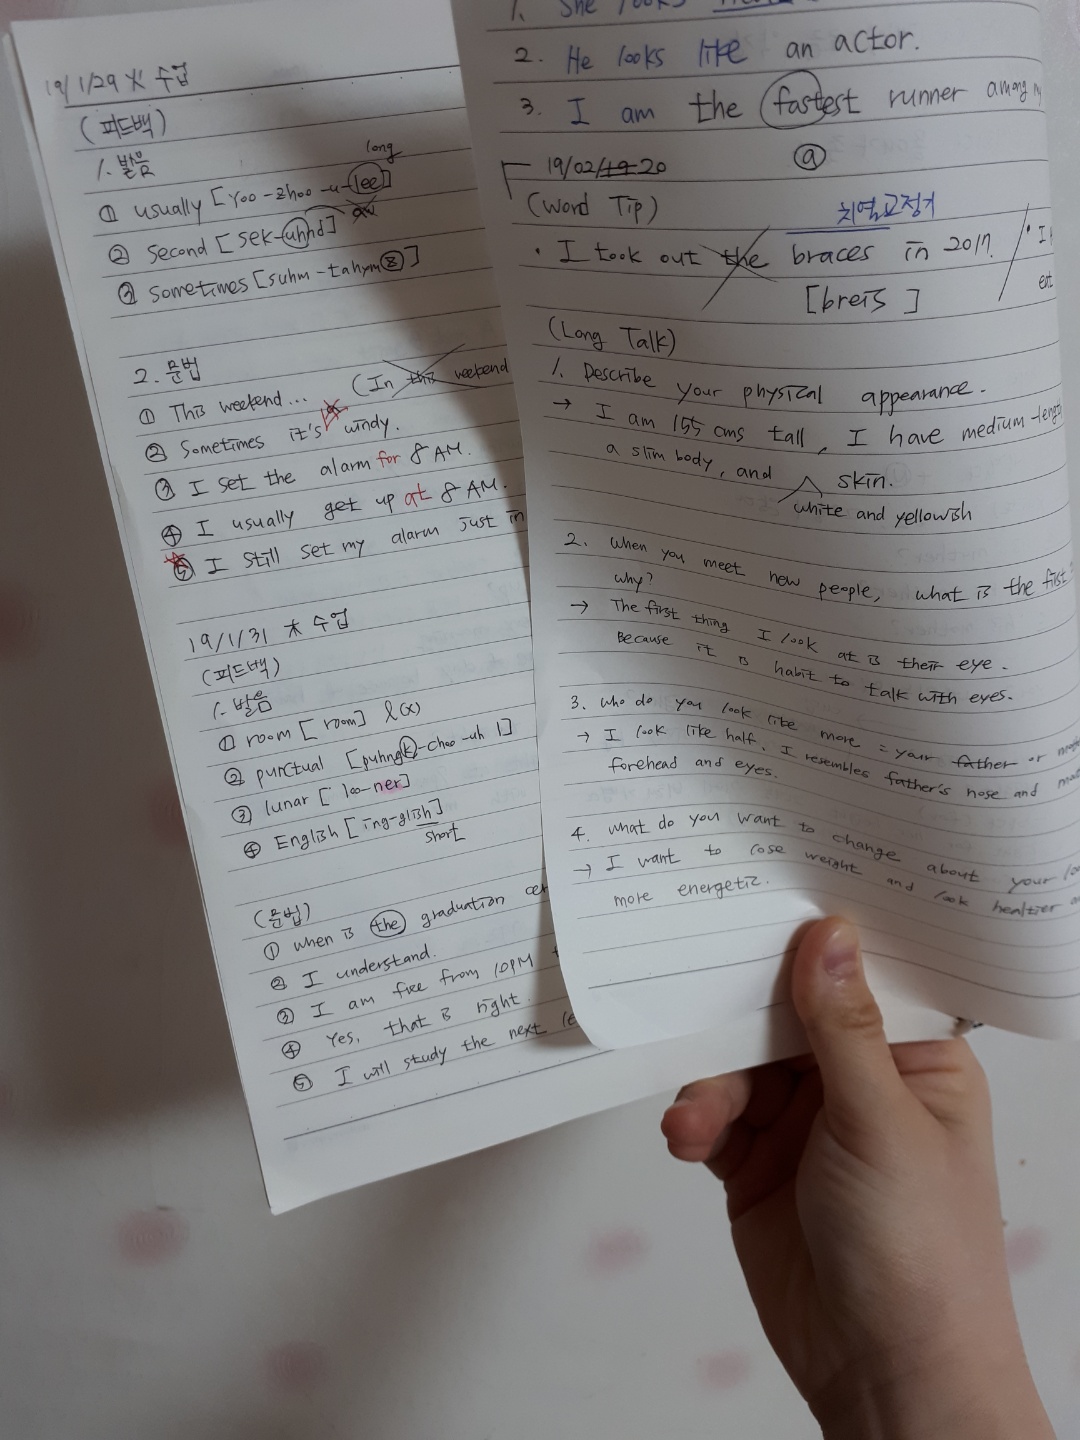 19/1/29 火 수업
(피드백)
1. 발음
long
① usually [Yoo-zhoo-u-lee]
② second [sek-uhnd]
③ sometimes [suhm-tahymz]
2. 문법
① This weekend... (In this weekend
② Sometimes it's windy.
③ I set the alarm for 8 AM.
④ I usually get up at 8 AM.
⑤ I still set my alarm just in
19/1/31 木 수업
(피드백)
1. 발음
① room [room] l(x)
② punctual [puhngk-choo-uhl]
③ lunar [loo-ner]
④ English [ing-glish]
short
(문법)
① when is the graduation cer
② I understand.
③ I am free from 10PM t
④ Yes, that is right.
⑤ I will study the next le
1. She looks
2. He looks like an actor.
3. I am the fastest runner among m
ⓐ
19/02/19 20
(Word Tip)
치열교정기
· I took out the braces in 2017.
[breis]
· I h
eat
(Long Talk)
1. Describe your physical appearance.
→ I am 155 cms tall, I have medium-length
a slim body, and skin.
white and yellowish
2. when you meet new people, what is the first
why?
→ The first thing I look at is their eye.
Because it is habit to talk with eyes.
3. who do you look like more = your father or
→ I look like half. I resembles father's nose and
forehead and eyes.
4. what do you want to change about your loo
→ I want to lose weight and look healtier a
more energetic.